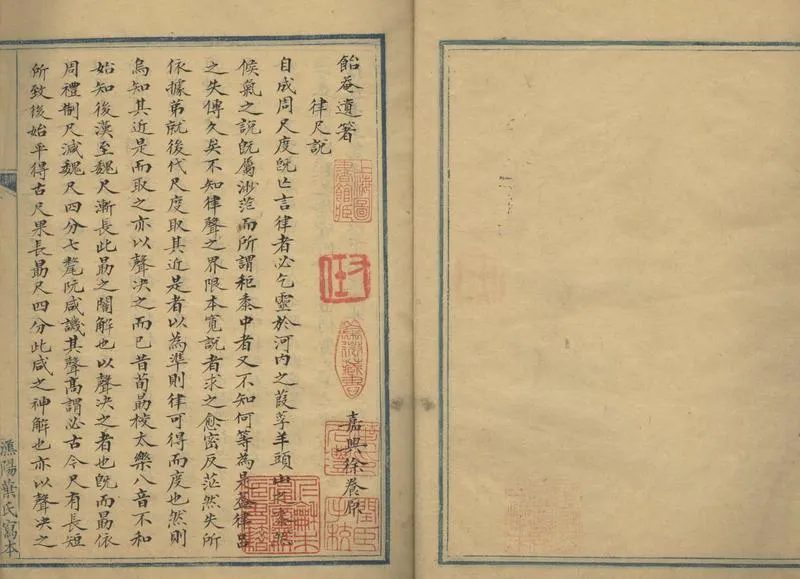 飴菴遺箸
律尺說
嘉興徐養原
自成周尺度旣亡言律者必乞靈於河內之葭孚羊頭山之秬黍然
候氣之說旣屬渺茫而所謂秬黍中者又不知何等為是蓋律呂
之失傳久矣不知律聲之界限本寬說者求之愈密反茫然失所
依據弟就後代尺度取其近是者以為準則律可得而度也然則
烏知其近是而取之亦以聲決之而已昔荀勗校太樂八音不和
始知後漢至魏尺漸長此勗之闇解也以聲決之者也旣而勗依
周禮制尺減魏尺四分七氂阮咸譏其聲高謂必古今尺有長短
所致後始平得古尺果長勗尺四分此咸之神解也亦以聲決之
漢陽葉氏寫本
上海圖
書館臧